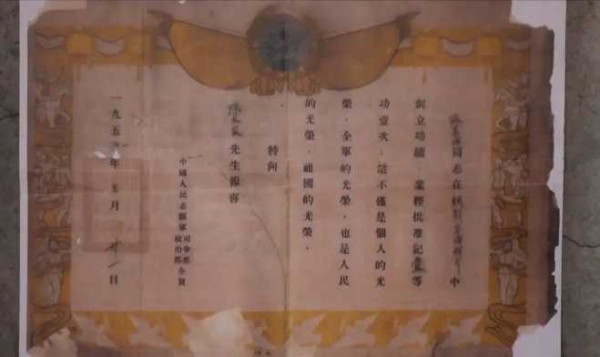 同志在
中
創立功績，業經批准記
等
功壹次，這不僅是個人的光
榮，全軍的光榮，也是人民
的光榮，祖國的光榮。
特向
先生報喜
中國人民志願軍
司令部
政治部
仝賀
一九五
年
月
日